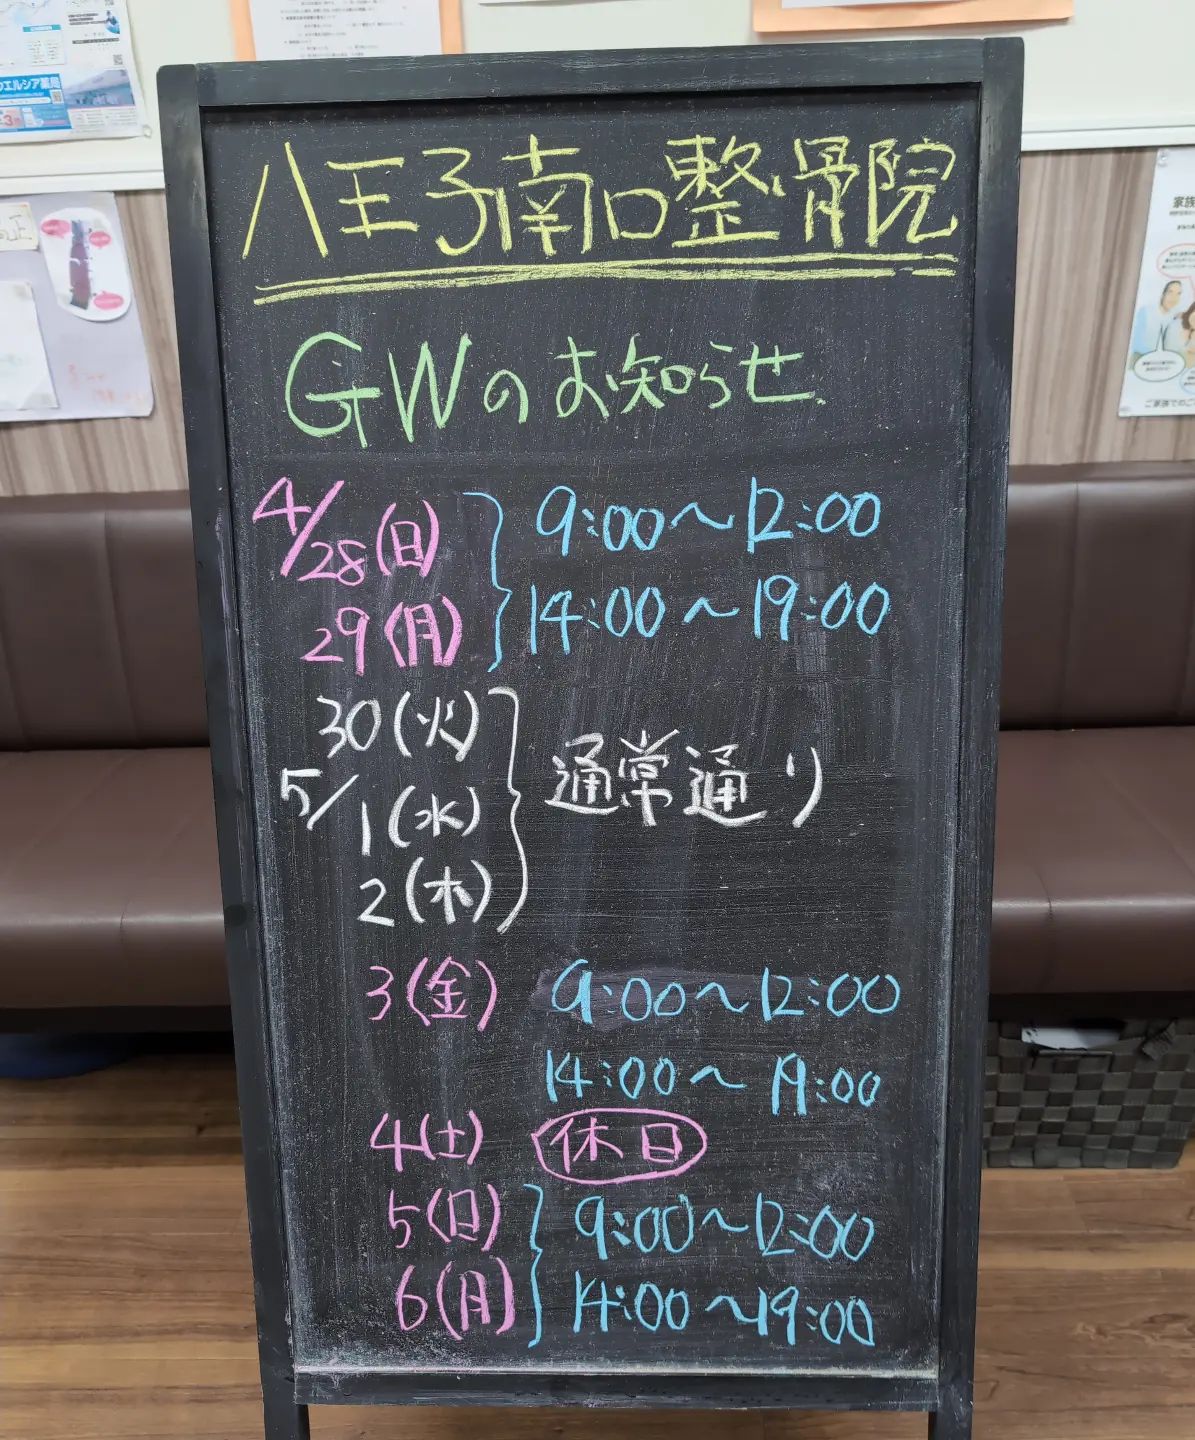 八王子南口整骨院
GWのお知らせ
4/28(日) 9:00〜12:00
29(月) 14:00〜19:00
30(火)
5/1(水) 通常通り
2(木)
3(金) 9:00〜12:00
14:00〜19:00
4(土) 休日
5(日) 9:00〜12:00
6(月) 14:00〜19:00
エルシア薬局
家族
ご家族でのご